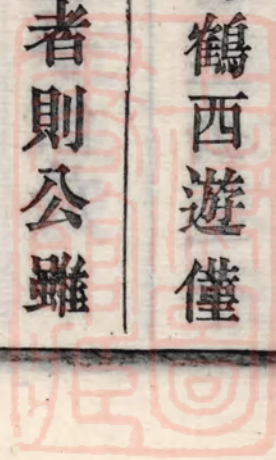 鶴西遊僅
者則公雖